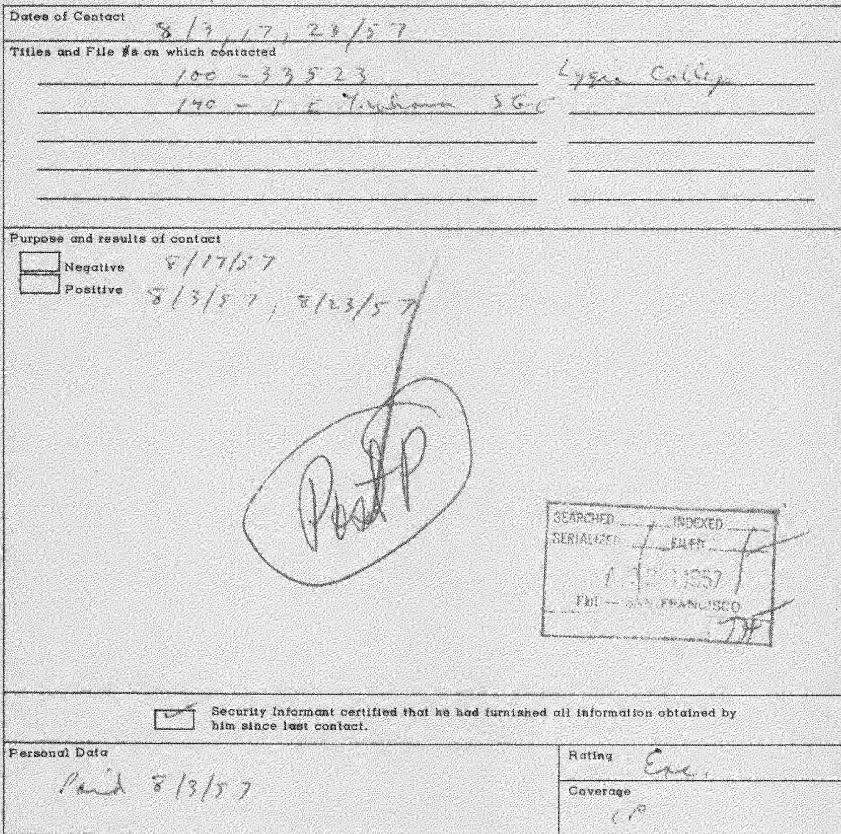 Dates of Contact
8/3, 17, 23/57
Titles and File #s on which contacted
100-33523
Purpose and results of contact
Negative 8/17/57
Positive 8/3/57, 8/23/57
Post P
SEARCHED INDEXED
SERIALIZED FILED
1957
FBI — SAN FRANCISCO
Security Informant certified that he had furnished all information obtained by
him since last contact.
Personal Data
Paid 8/3/57
Rating
Exc.
Coverage
CP